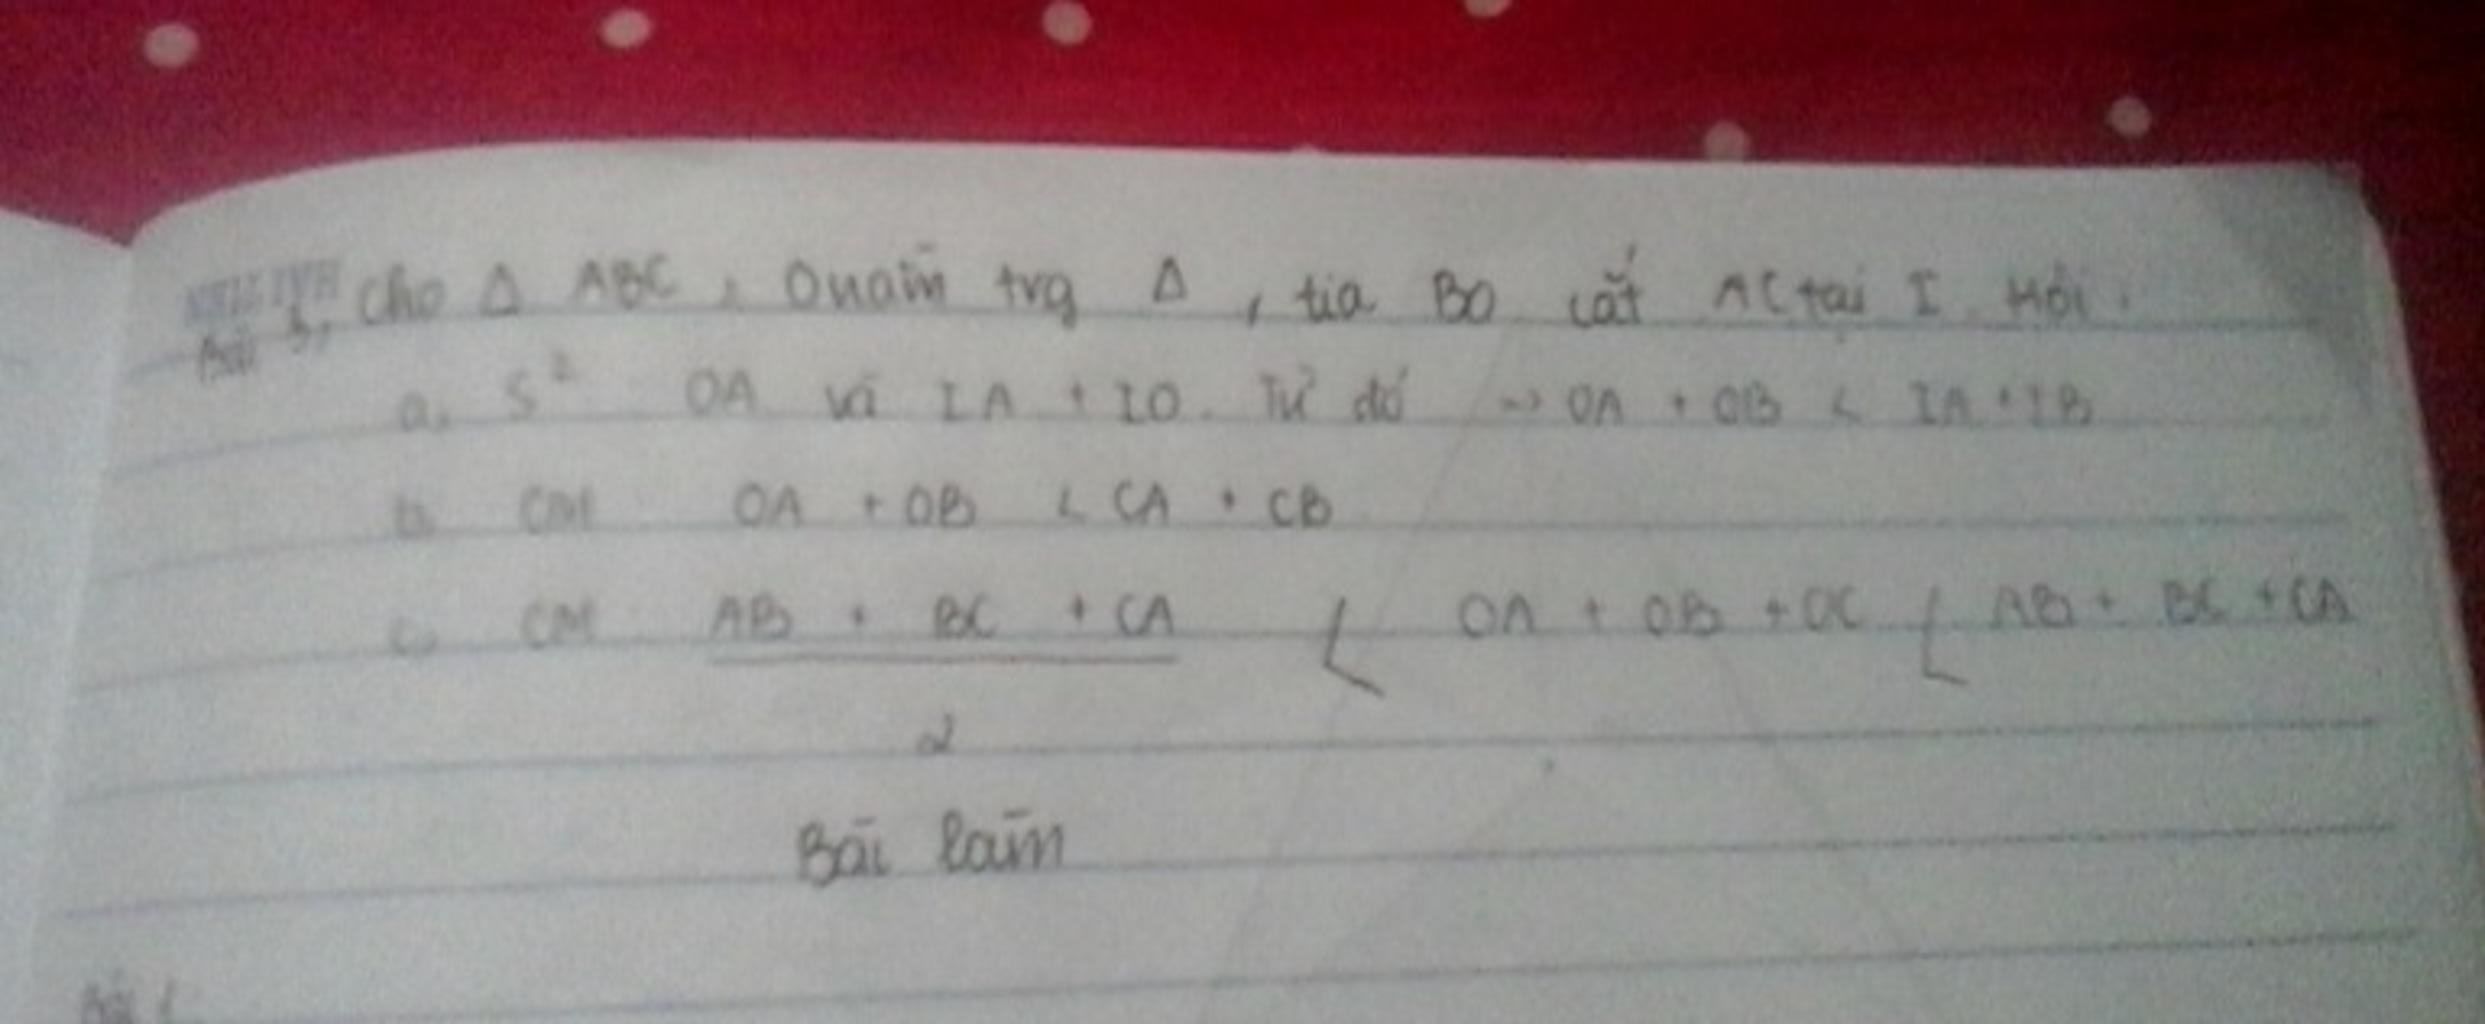 Bài 3, Cho Δ ABC, O nằm trg Δ, tia BO cắt AC tại I. Hỏi:
a. S² OA và IA + IO. Từ đó => OA + OB < IA + IB
b. CM OA + OB < CA + CB
c. CM AB + BC + CA < OA + OB + OC < AB + BC + CA
2
Bài làm